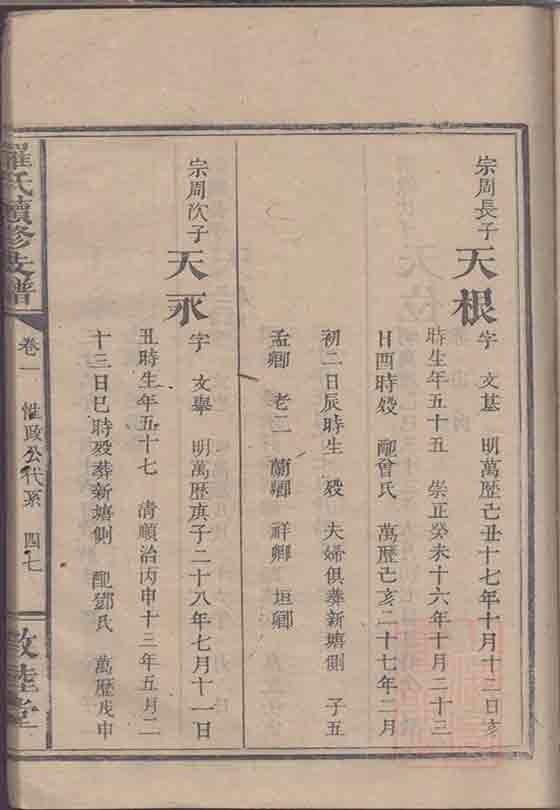 宗周長子
天根
字 文基 明萬歴己丑十七年十月十二日亥
時生年五十五 崇正癸未十六年十月二十三
日酉時殁 配曾氏 萬歴己亥二十七年二月
初二日辰時生 殁 夫婦俱葬新塘側 子五
孟卿 老二 蘭卿 祥卿 垣卿
宗周次子
天永
字 文舉 明萬歴庚子二十八年七月十一日
丑時生年五十七 清順治丙申十三年五月二
十三日巳時殁葬新塘側 配鄧氏 萬歴戊申
羅氏續修支譜
卷一 惟政公代系 四七
敦陸堂